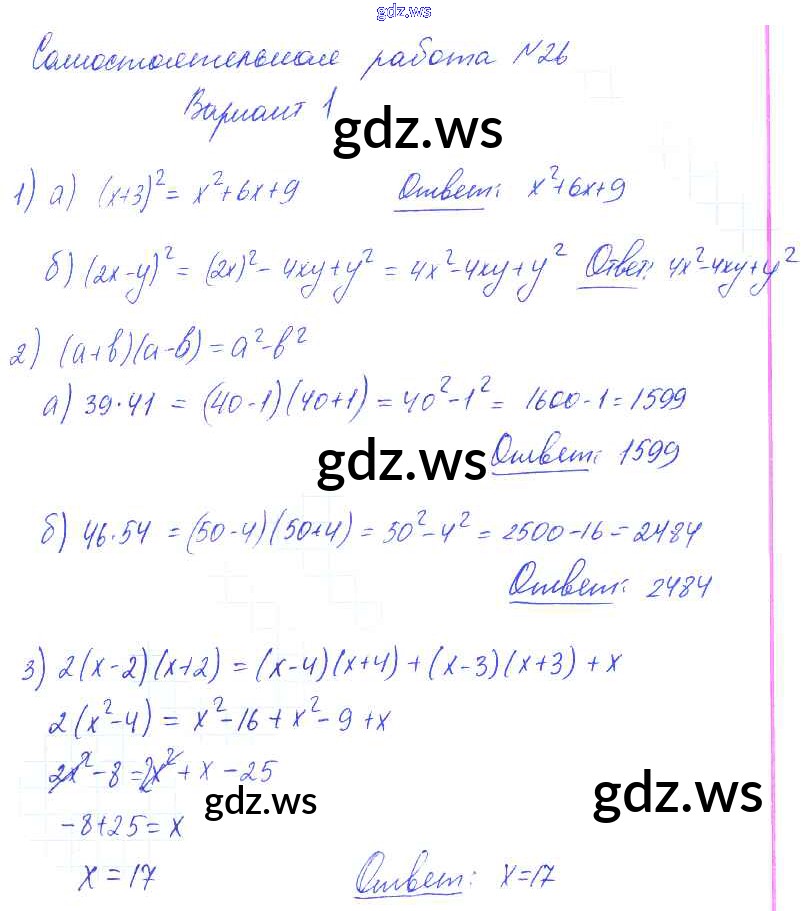 gdz.ws
Самостоятельная работа №26
Вариант 1
gdz.ws
1) а) (x+3)² = x²+6x+9 Ответ: x²+6x+9
б) (2x-y)² = (2x)² - 4xy+y² = 4x²-4xy+y² Ответ: 4x²-4xy+y²
2) (a+b)(a-b)=a²-b²
а) 39·41 = (40-1)(40+1) = 40²-1² = 1600-1=1599
gdz.ws Ответ: 1599
б) 46·54 = (50-4)(50+4) = 50²-4² = 2500-16=2484
Ответ: 2484
3) 2(x-2)(x+2) = (x-4)(x+4) + (x-3)(x+3) + x
2(x²-4) = x²-16+x²-9+x
2x²-8=2x²+x-25
gdz.ws gdz.ws
-8+25=x
x=17 Ответ: x=17